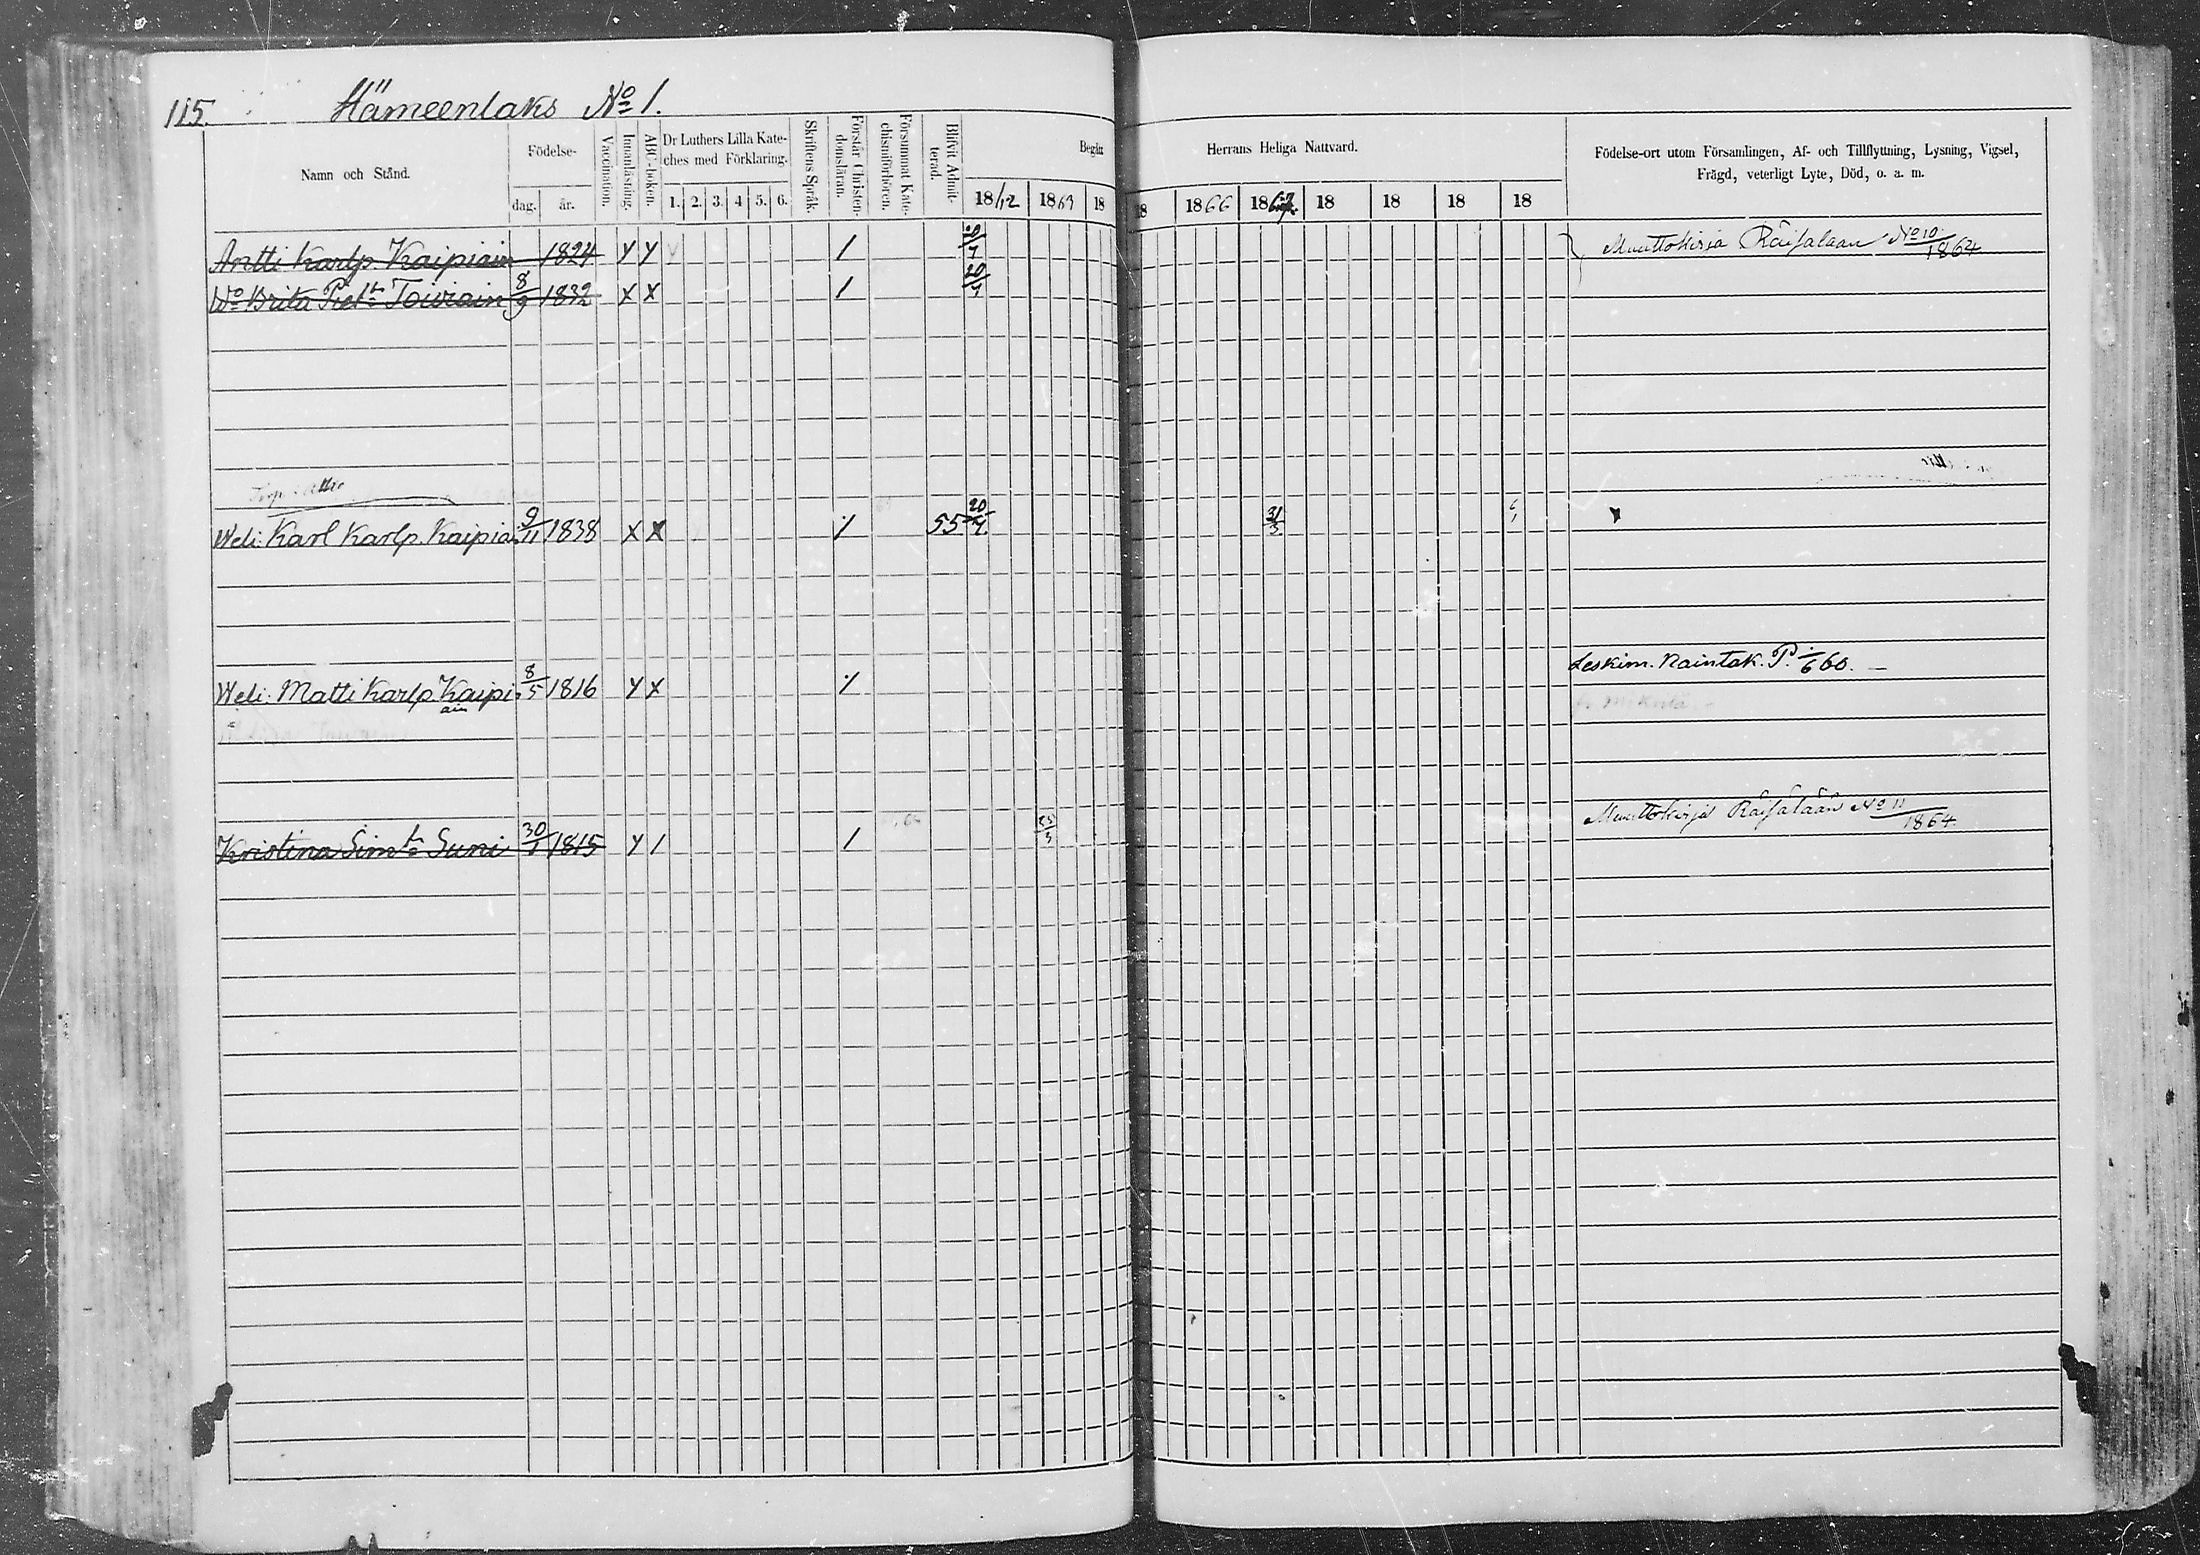 115.
Hämeenlaks No 1.
Namn och Stånd.
Födelse-
dag.
år.
Vaccination.
Innanläsning.
ABC-boken.
Dr Luthers Lilla Kate-
ches med Förklaring.
1. 2. 3. 4 5. 6.
Skriftens Språk.
Förstår Christen-
domsläran.
Försummat Kate-
chismiförhören.
Blifvit Admit-
terad.
Begått
Herrans Heliga Nattvard.
1862 1863 18
18 1866 1867 18 18 18 18
Födelse-ort utom Församlingen, Af- och Tillflyttning, Lysning, Vigsel,
Frägd, veterligt Lyte, Död, o. a. m.
Antti Karlp. Kaipiain 1824 Y Y / 20/7 Muuttokirja Räisälään No 10 1864
Wo Brita Pietr Toiviain 8/9 1832 X X / 20/7
Weli: Karl Karlp. Kaipiai 9/11 1838 X X ·/· 55 20/7. 31/3
Leskim. Naintak. P. 60.
Weli: Matti Karlp. Kaipi 8/5 1816 Y X ·/·
ain
Muuttokirja Räisälään No 11
1864.
Kristina Simtr Suni 30/1 1815 Y / / 25/3